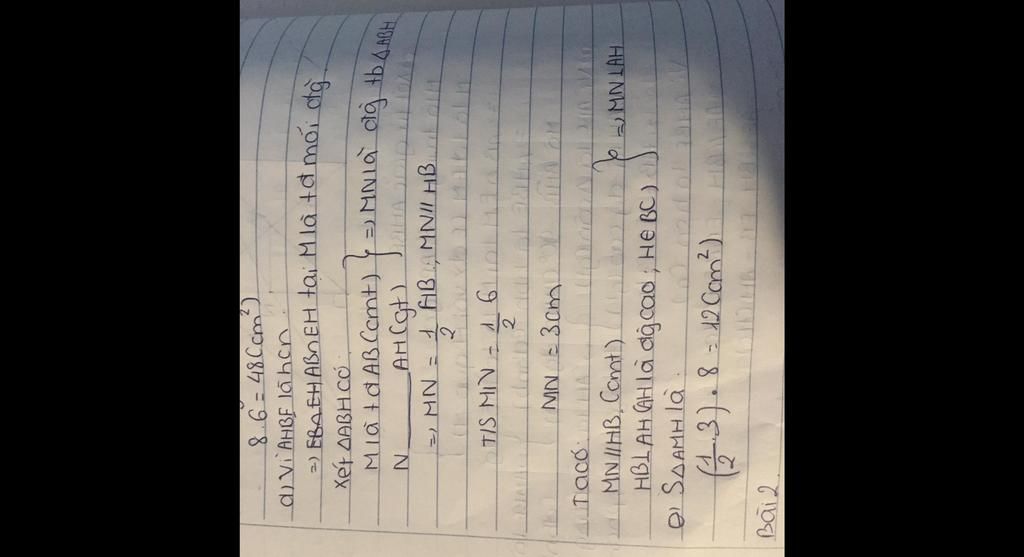 8.6 = 48(cm²)
d) Vì AHBE là hcn
=) EH∩AB tại M là tđ mỗi đg
Xét △ABH có
M là tđ AB (cmt) } =) MN là đg tb △ABH
N ____ AH (gt)
=) MN = 1/2 HB, MN // HB
T/S MN = 1/2 6
MN = 3cm
Ta có:
MN // HB (cmt) } =) MN ⊥ AH
HB ⊥ AH (AH là đg cao; H ∈ BC)
e) S△AMH là
(1/2 . 3) . 8 = 12(cm²)
Bài 2